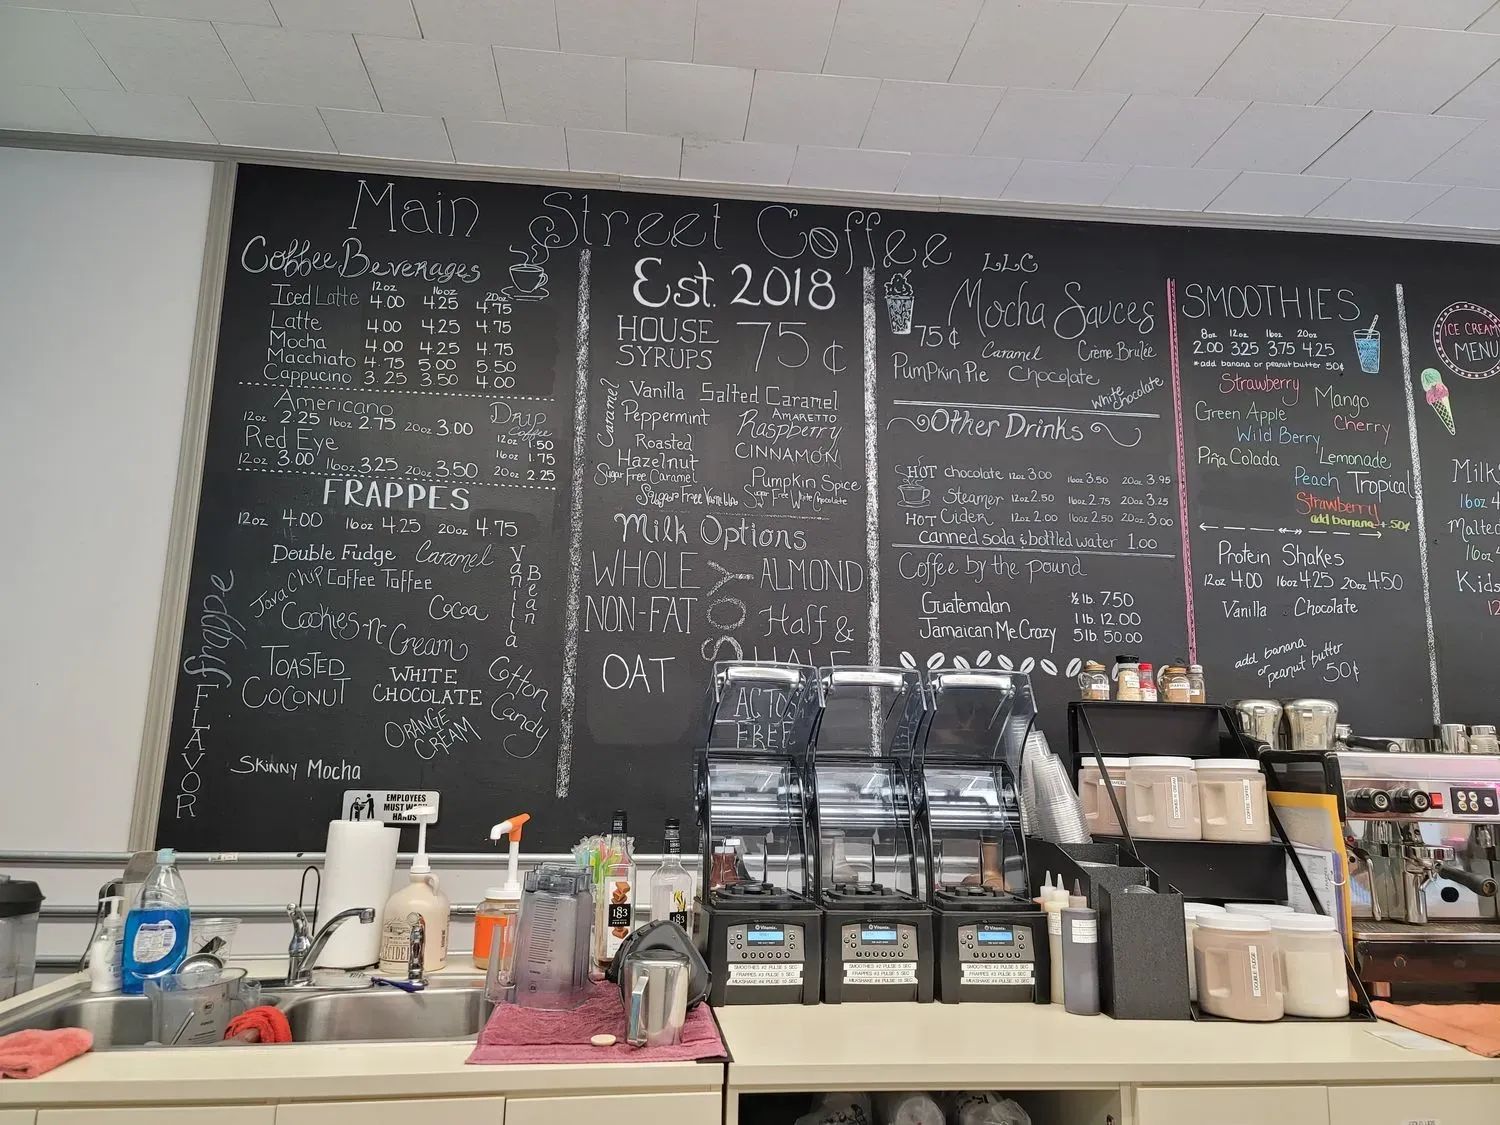 Main Street Coffee LLC
Coffee Beverages
12oz 16oz 20oz
Iced Latte 4.00 4.25 4.75
Latte 4.00 4.25 4.75
Mocha 4.00 4.25 4.75
Macchiato 4.75 5.00 5.50
Cappucino 3.25 3.50 4.00
Americano
12oz 2.25 16oz 2.75 20oz 3.00
Red Eye
12oz 3.00 16oz 3.25 20oz 3.50
Drip
Coffee
12oz 1.50
16oz 1.75
20oz 2.25
FRAPPES
12oz 4.00 16oz 4.25 20oz 4.75
frappe
FLAVOR
Double Fudge Caramel
Vanilla
Bean
Java Chip Coffee Toffee
Cookies-n-Cream
Cocoa
TOASTED
COCONUT
WHITE
CHOCOLATE
Cotton
Candy
ORANGE
CREAM
Skinny Mocha
Est. 2018
HOUSE
SYRUPS
75¢
Caramel
Vanilla Salted Caramel
Peppermint
AMARETTO
Raspberry
Roasted
Hazelnut
CINNAMON
Sugar Free Caramel
Pumpkin Spice
Sugar Free Vanilla
Sugar Free White Chocolate
Milk Options
WHOLE
SOY
ALMOND
NON-FAT
Half &
HALF
OAT
FREE
Mocha Sauces
75¢
Caramel Crème Brulée
PumPkin Pie Chocolate
White Chocolate
Other Drinks
HOT chocolate 12oz 3.00 16oz 3.50 20oz 3.95
Steamer 12oz 2.50 16oz 2.75 20oz 3.25
HOT Cider 12oz 2.00 16oz 2.50 20oz 3.00
canned soda & bottled water 1.00
Coffee by the pound
Guatemalan
Jamaican Me Crazy
½ lb. 7.50
1 lb. 12.00
5 lb. 50.00
SMOOTHIES
8oz 12oz 16oz 20oz
2.00 3.25 3.75 4.25
*add banana or peanut butter 50¢
Strawberry
Mango
Green Apple
Cherry
Wild Berry
Piña Colada
Lemonade
Peach
Tropical
Strawberry
add banana +.50¢
Protein Shakes
12oz 4.00 16oz 4.25 20oz 4.50
Vanilla Chocolate
add banana
or peanut butter
50¢
ICE CREAM
MENU
Milk
16oz 4
Malted
16oz 4
Kids
12
EMPLOYEES
MUST WASH
HANDS
1883
1883
Vitamix
SMOOTHIES #2 PULSE 5 SEC
FRAPPES #3 PULSE 5 SEC
MILKSHAKE #4 PULSE 10 SEC
Vitamix
SMOOTHIES #2 PULSE 5 SEC
FRAPPES #3 PULSE 5 SEC
MILKSHAKE #4 PULSE 10 SEC
Vitamix
SMOOTHIES #2 PULSE 5 SEC
FRAPPES #3 PULSE 5 SEC
MILKSHAKE #4 PULSE 10 SEC
COOKIES N CREAM
COFFEE TOFFEE
DOUBLE FUDGE